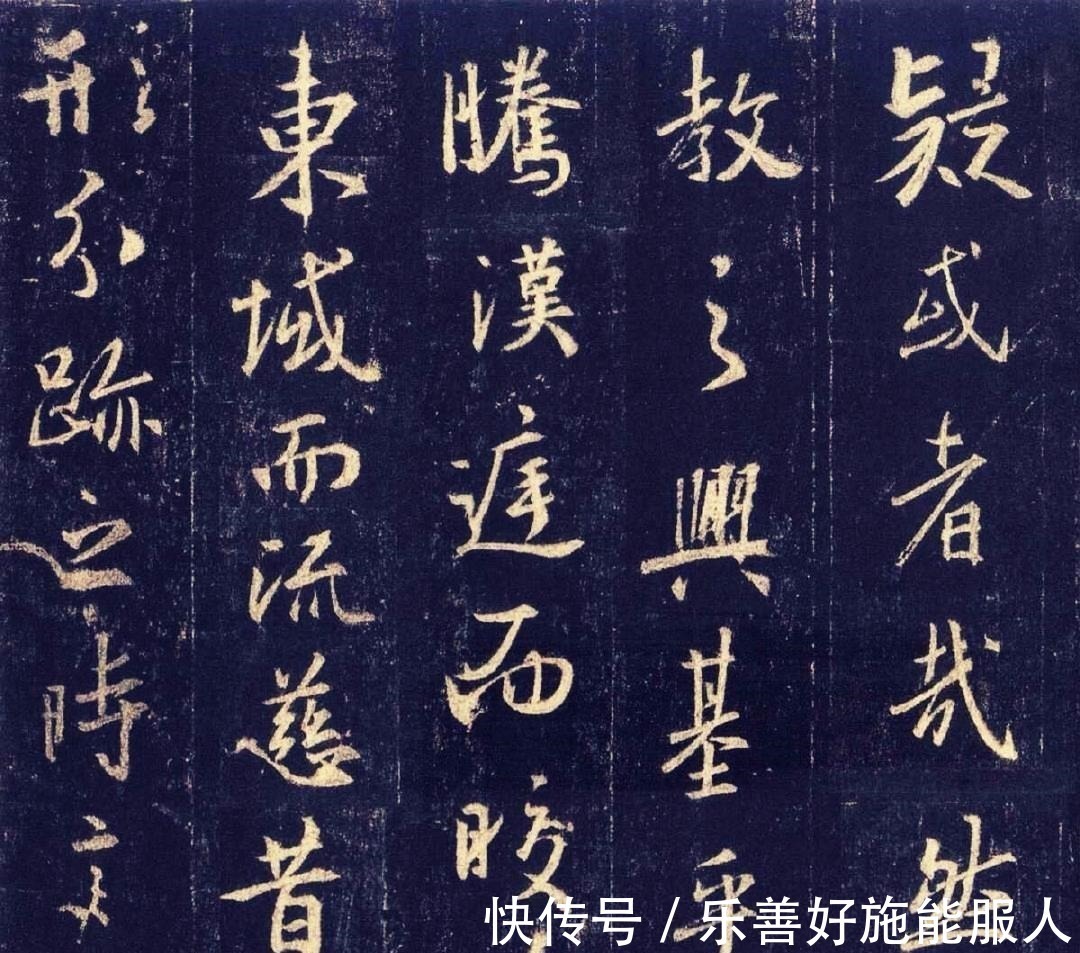 疑或者哉然
教之興基乎
騰漢庭而皎
東域而流慈昔
形分跡之時言
快传号 / 乐善好施能服人